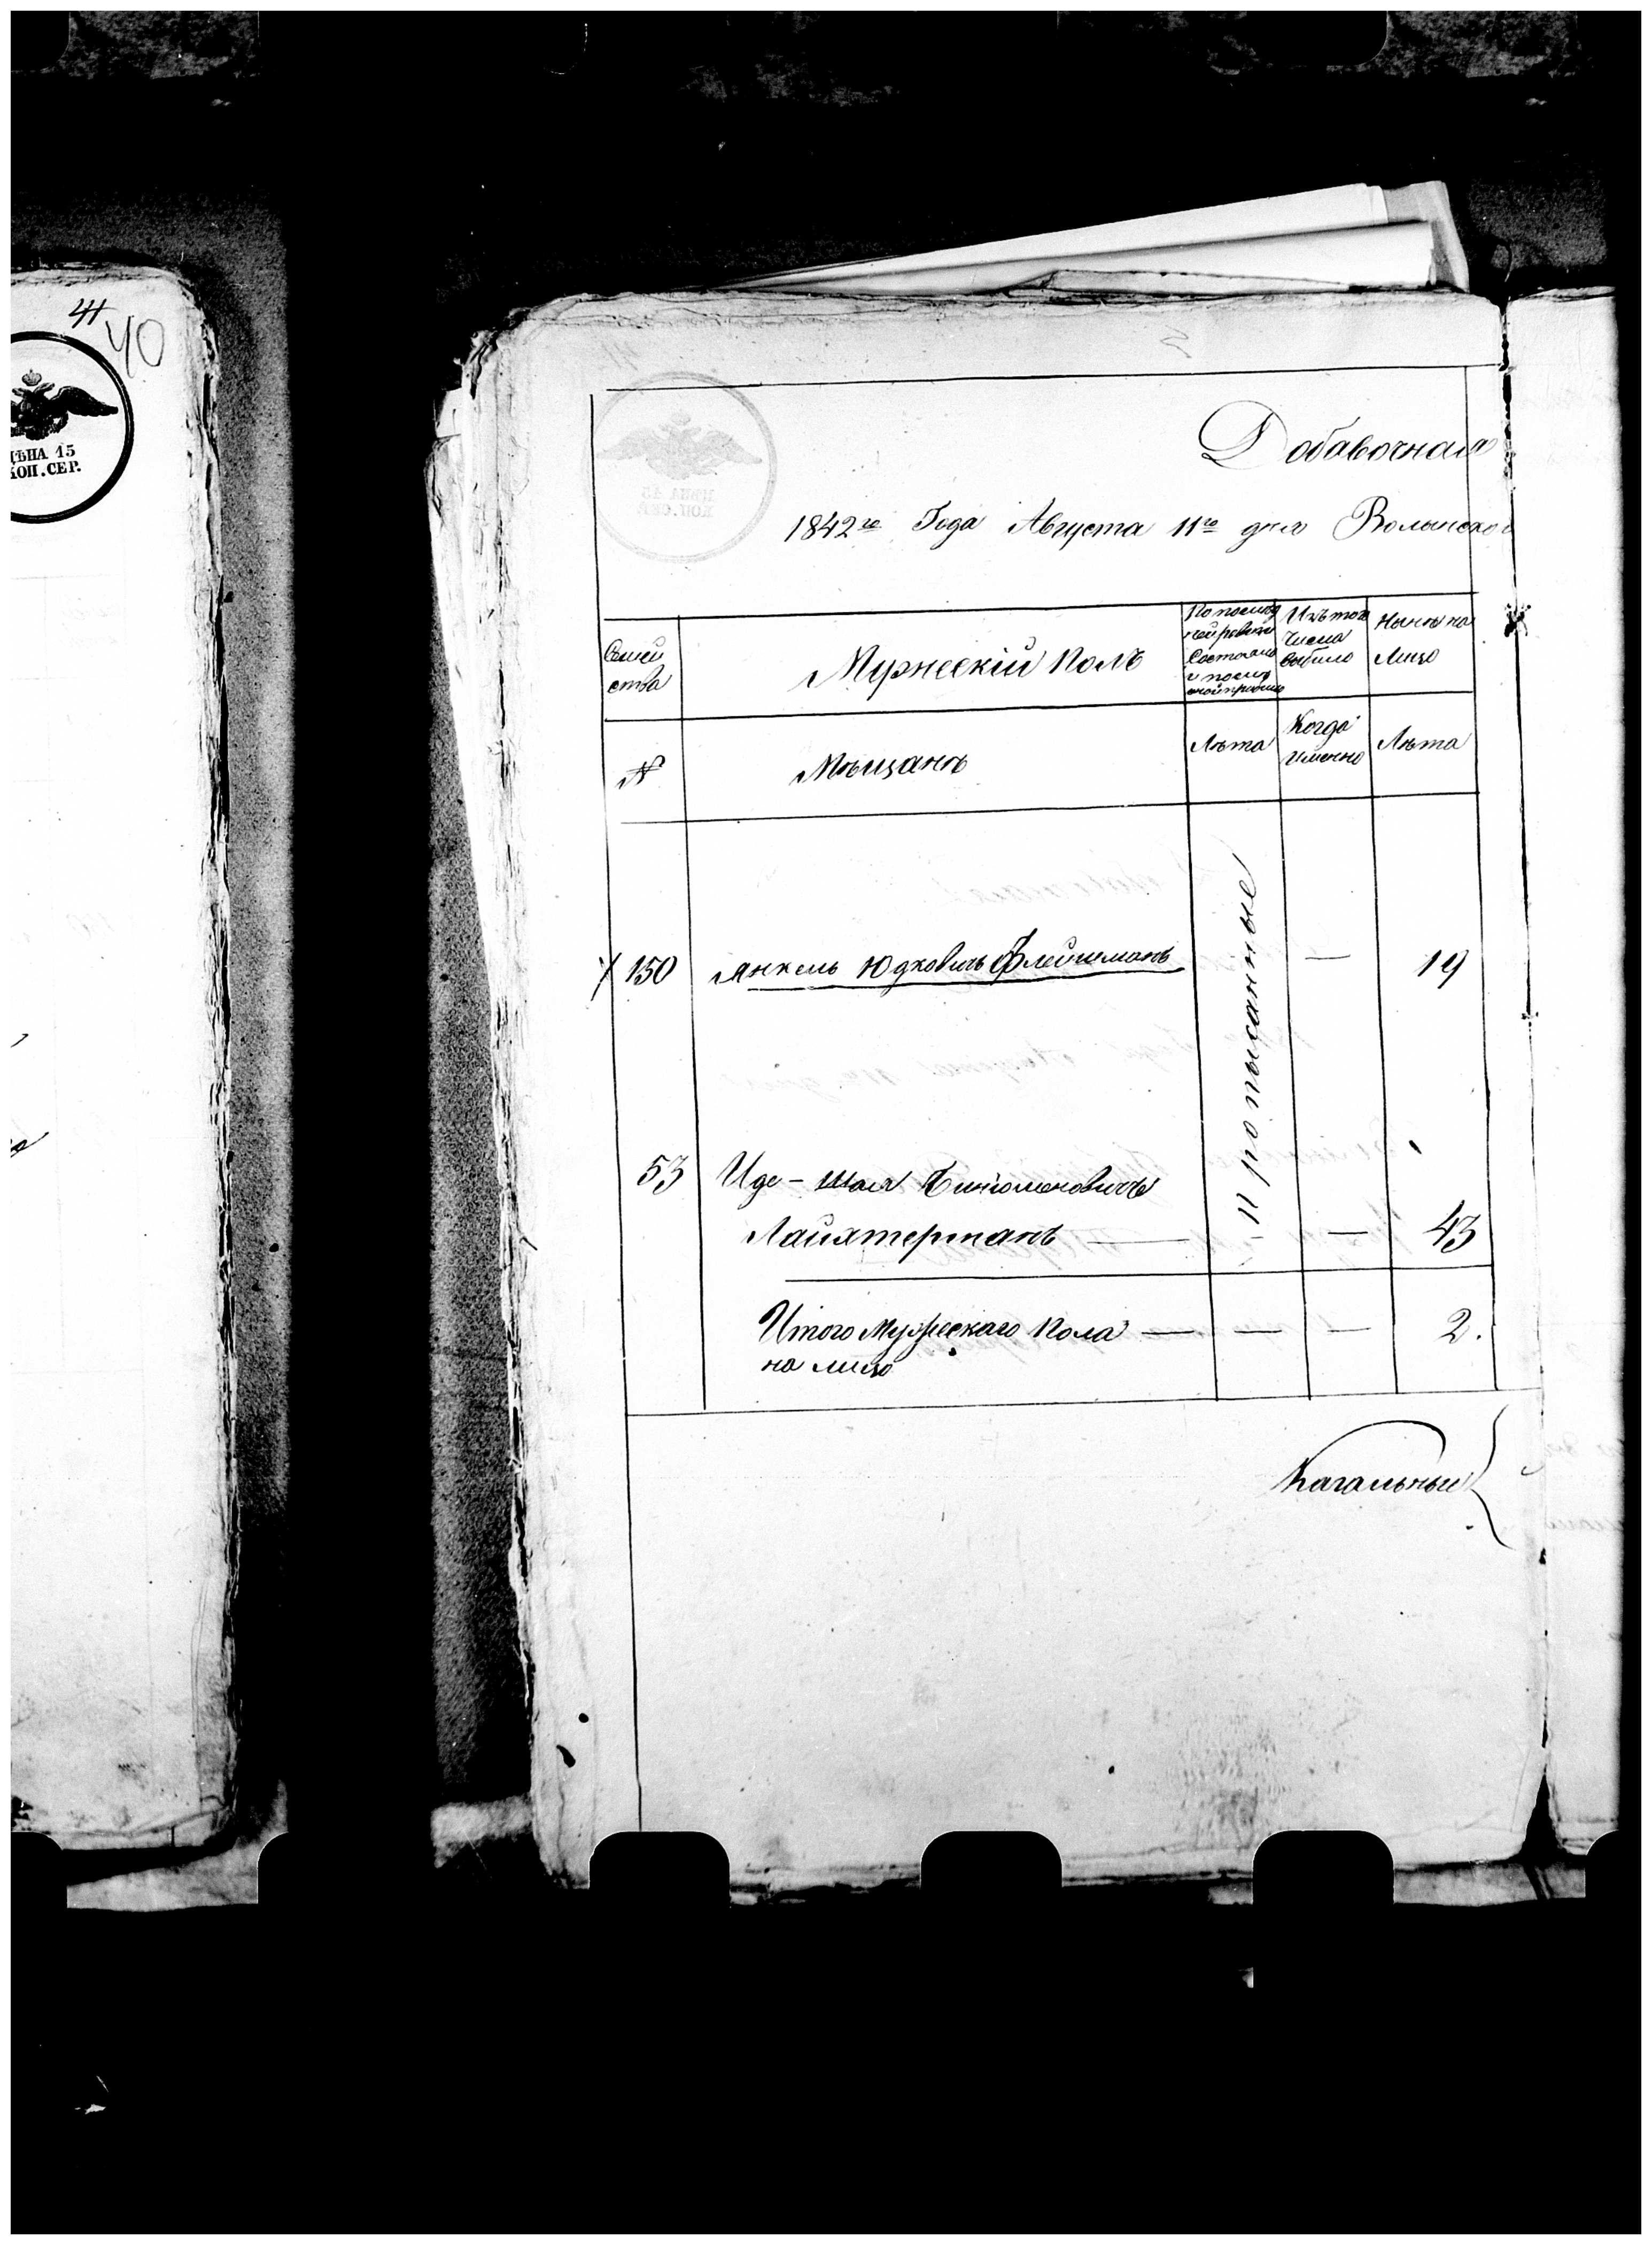 41
40
ЦѢНА 15
КОП. СЕР.
Добавочная
1842го Года Августа 11го дня Волынской
Семей
ства
Мужескій Полъ
По послѣд
ней ревизіи
Состояло
и послѣ
Изъ того
Числа
выбыло
Нынѣ на
Лицо
№
Мѣщанъ
Лѣта
Когда
именно
Лѣта
150 Янкель Юдковичъ Флейшманъ — 19
Прописанные
53 Иде - Шая
Лайхтерманъ — — 43
Итого Мужескаго Пола — — — 2.
на лицо
Кагальные